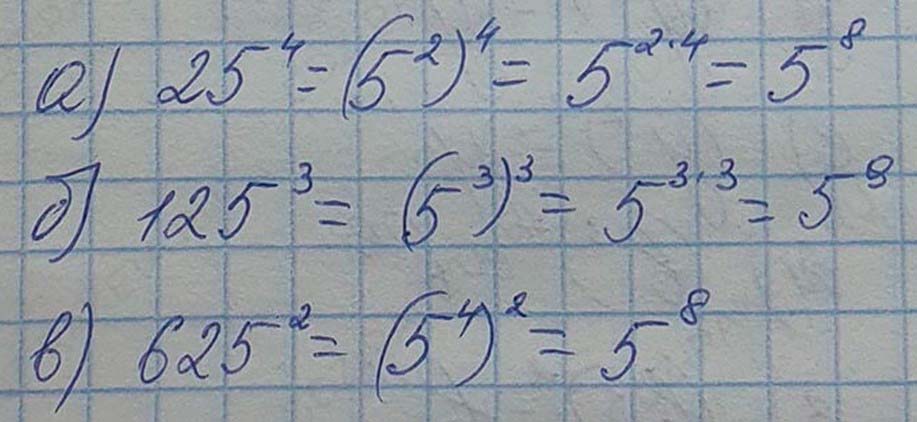 а) 25⁴ = (5²)⁴ = 5²·⁴ = 5⁸
б) 125³ = (5³)³ = 5³·³ = 5⁹
в) 625² = (5⁴)² = 5⁸